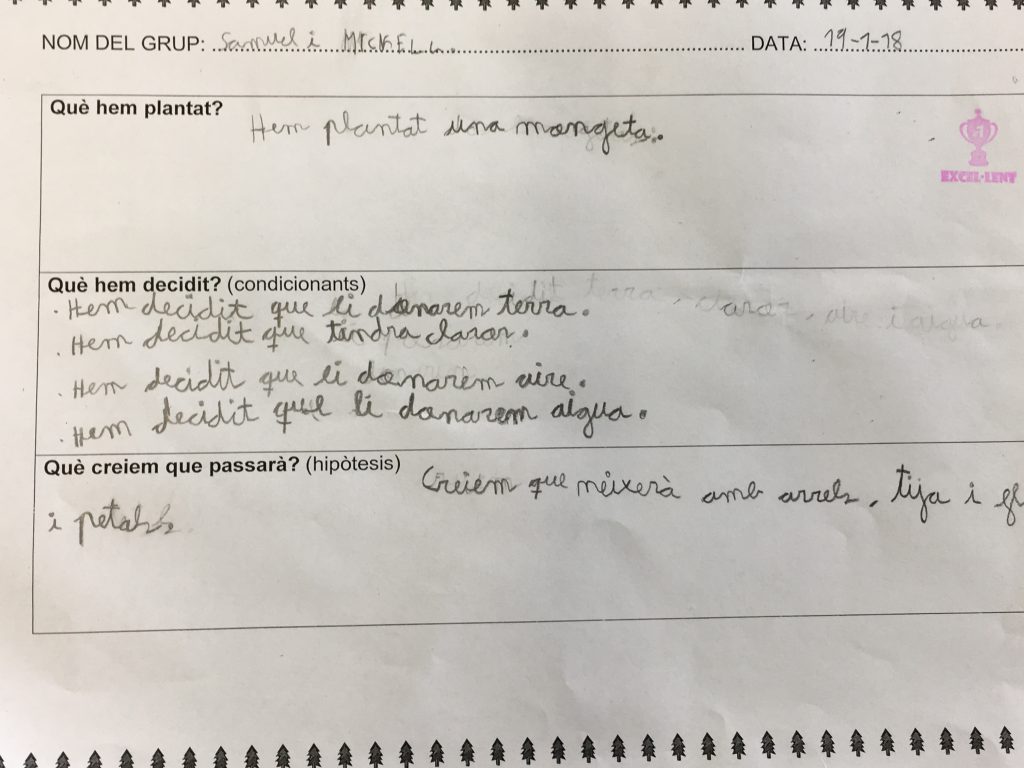 NOM DEL GRUP: Samuel i MICKELL. DATA: 19-1-18
Què hem plantat?
Hem plantat una mongeta.
EXCEL·LENT
Què hem decidit? (condicionants)
· Hem decidit que li donarem terra.
· Hem decidit que tindra claror.
· Hem decidit que li donarem aire.
· Hem decidit que li donarem aigua.
Què creiem que passarà? (hipòtesis)
Creiem que neixerà amb arrels, tija i
i petals